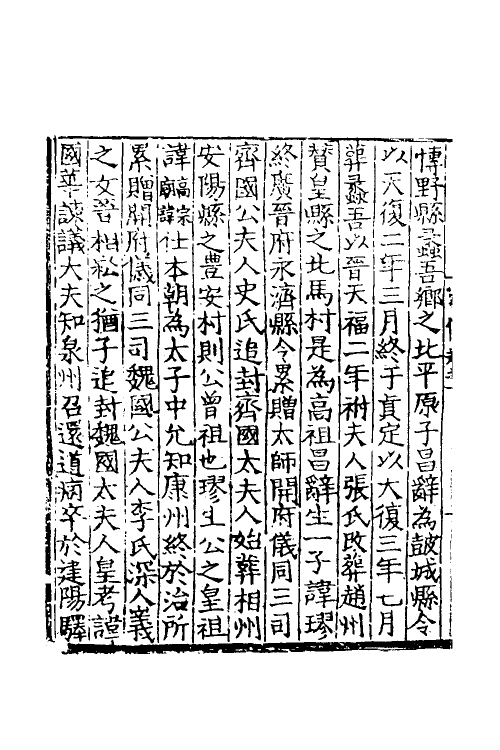 博野縣蠡吾鄉之北平原子昌辭為皷城縣令
以天復二年三月終于真定以大復三年七月
葬蠡吾以晉天福二年祔夫人張氏改葬趙州
賛皇縣之北馬村是為高祖昌辭生一子諱璆
終廣晉府永濟縣令累贈太師開府儀同三司
齊國公夫人史氏追封齊國太夫人始葬相州
安陽縣之豊安村則公曾祖也璆生公之皇祖
諱高宗廟諱仕本朝為太子中允知康州終於治所
累贈開府儀同三司魏國公夫人李氏深入義
之文者相衆之猶子追封魏國太夫人皇考諱
國華諫議大夫知泉州召還道病卒於建陽驛